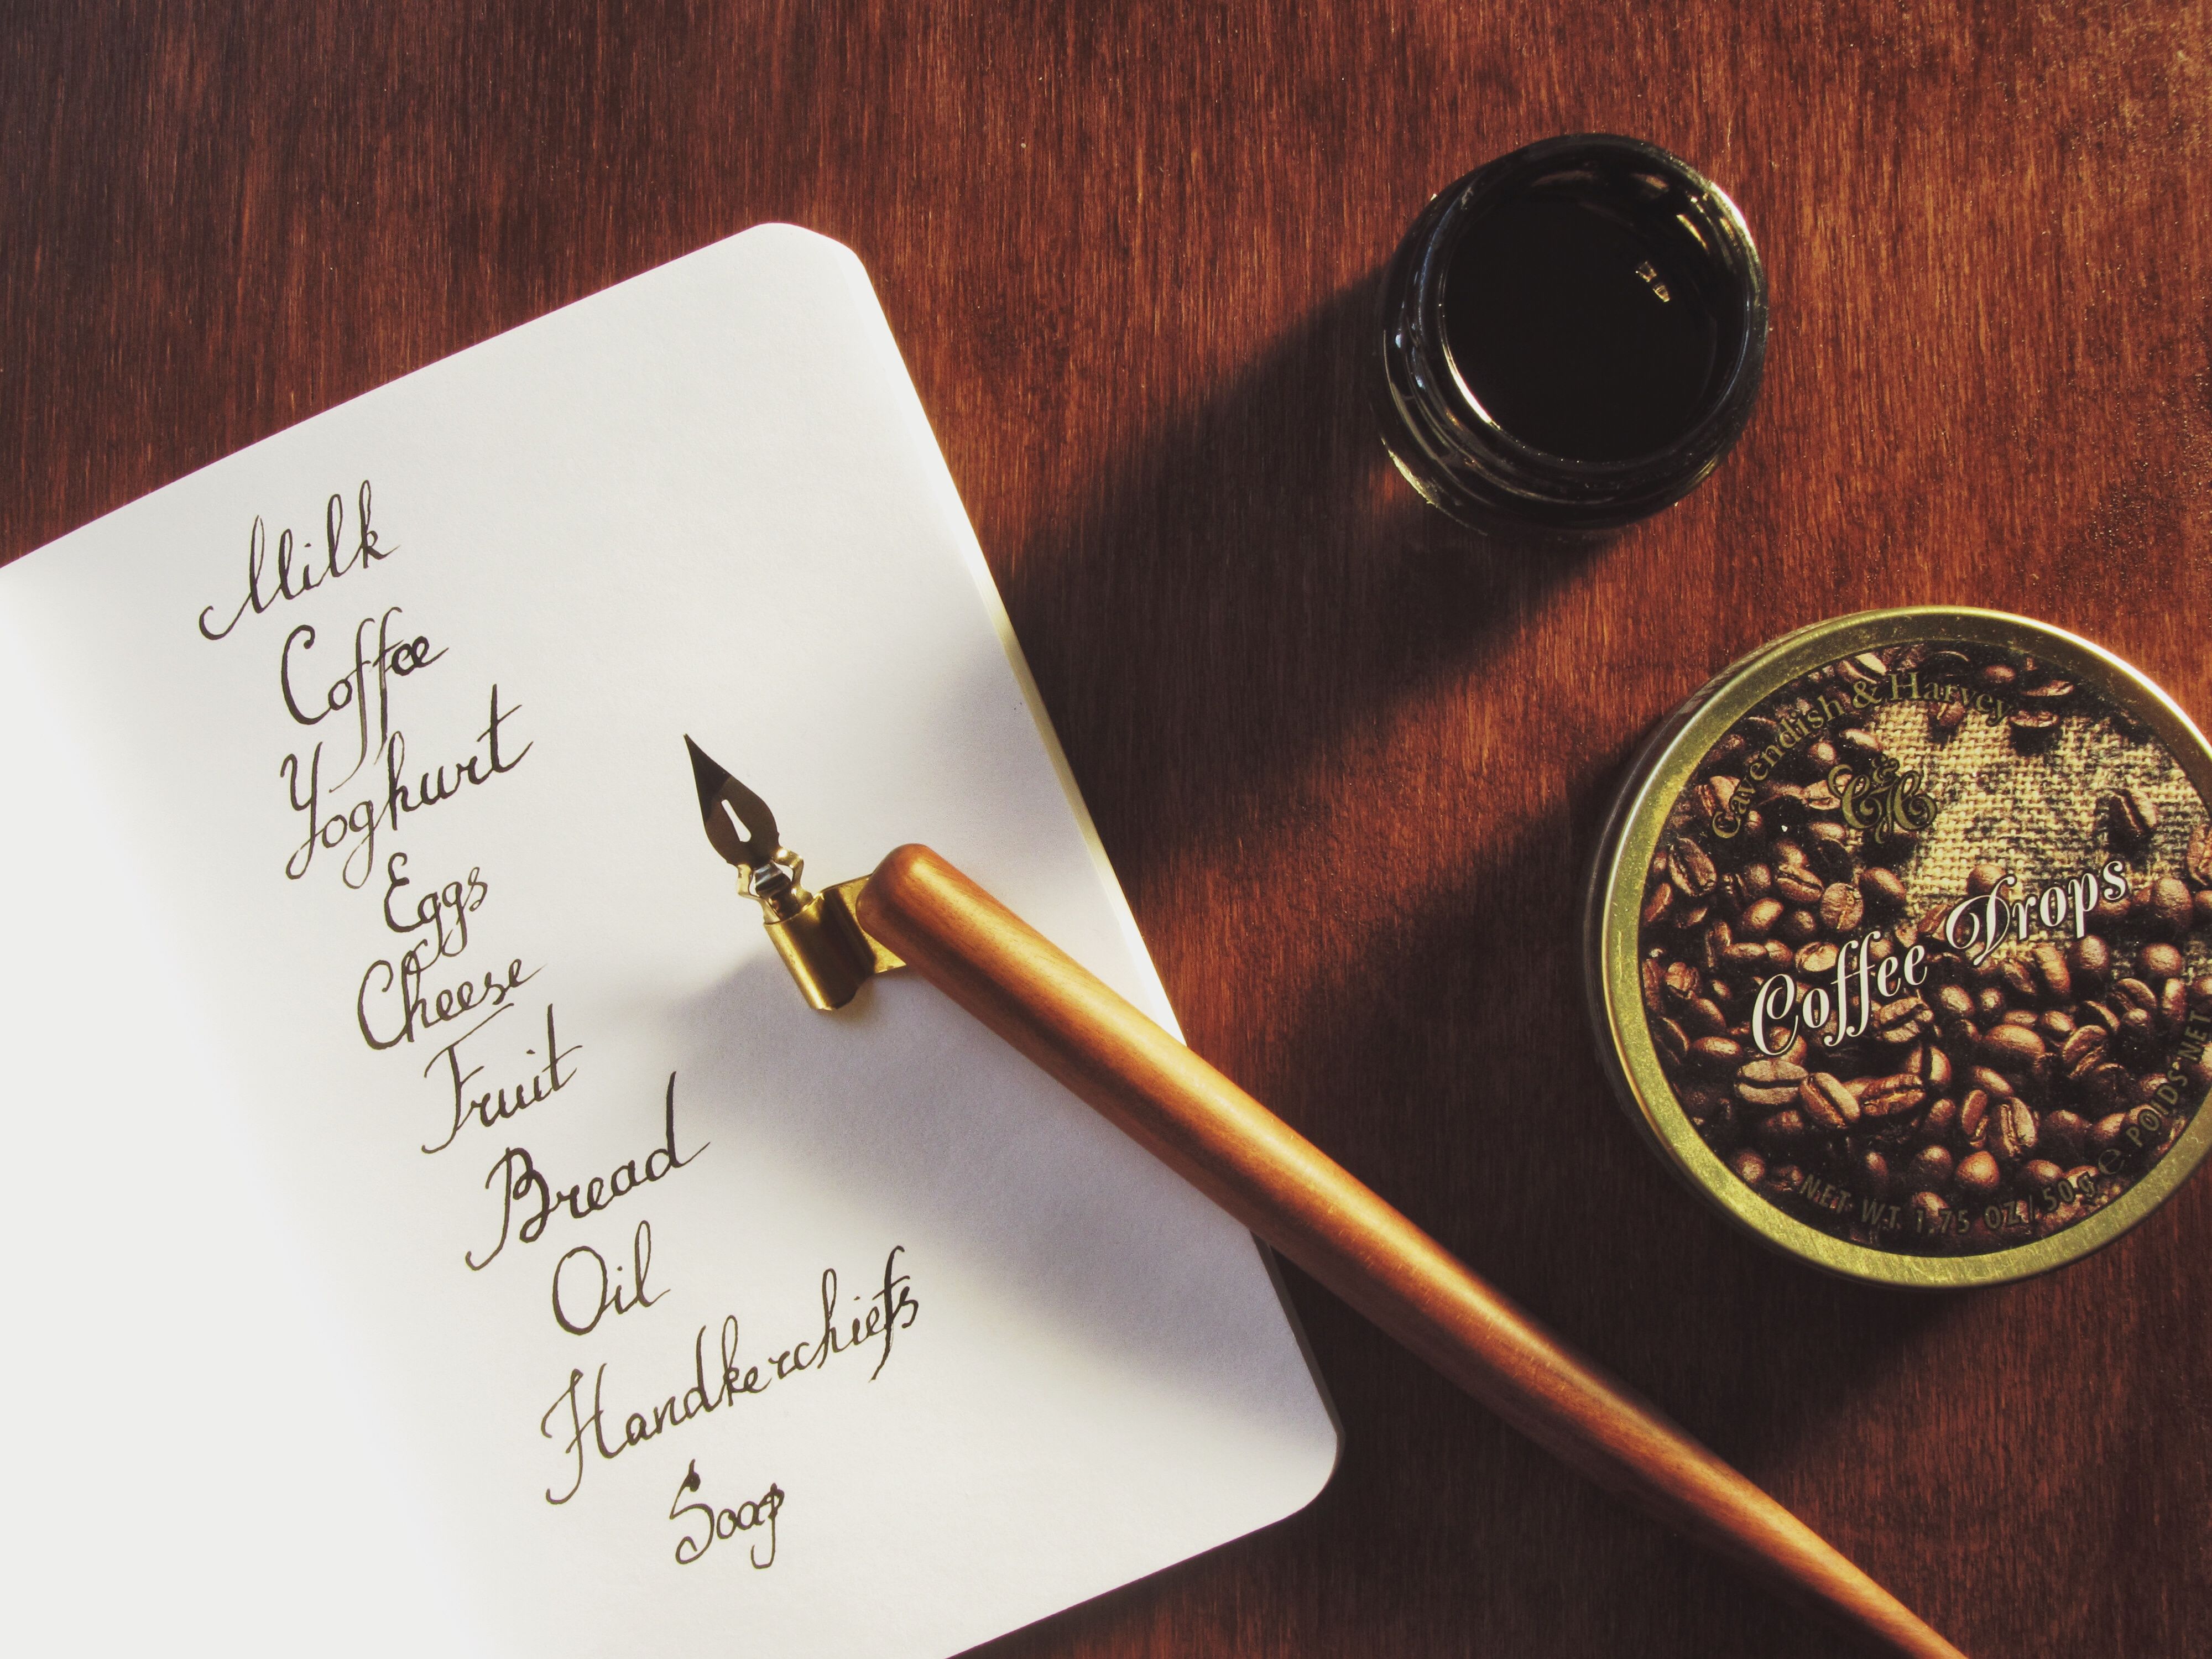 Milk
Coffee
Yoghurt
Eggs
Cheese
Fruit
Bread
Oil
Handkerchiefs
Soap
Cavendish & Harvey
C&H
Coffee Drops
NET WT. 1.75 OZ/50g e POIDS NET